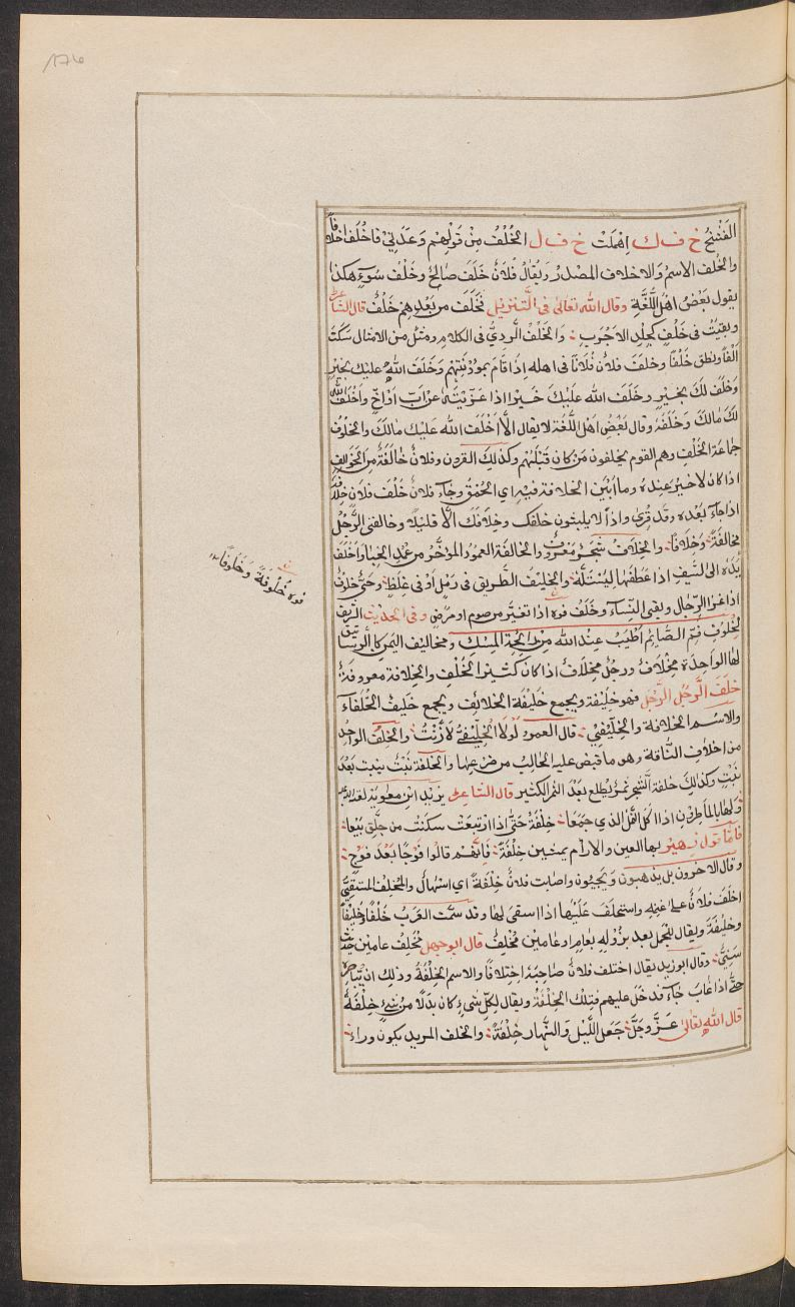 الفَشْخُ خ ف ك اهملت خ ف ل الخُلْفُ مِن قَولِهِم وَعَدَنِي فَاخْلَفَ اخلافًا
والخُلف الاسمُ وَالاخلاف المصدرُ وَيُقَالُ فُلَانٌ خَلَفَ صَالحٌ وخَلْفَ سُوءٍ هكذا
يقول بَعْضُ اهل اللُّغَةِ وقال الله تعالى فى التنزيل فَخَلَفَ من بَعْدِهِم خَلْفٌ قال الشاعر
وبقيتُ فى خَلْفٍ كجلد الاجرب والخَلْفُ الردىُّ فى الكلام ومثل من الامثال سكت
الفًا ونطق خَلْفًا وخلفَ فلانٌ فلانًا فى اهله اِذَا قَامَ بمؤونتهم وَخَلَفَ اللهُ عليك بخيرٍ
وَخَلَفَ لَكَ بخيرٍ وخَلَفَ الله عَلَيْكَ خَيْرًا اذا عَزَّيْتَهُ عن ابٍ او اخٍ واَخْلَفَ الله
لكَ مَالَكَ وخَلَفَهُ وقال بَعْضُ اهْلِ اللُّغَة لا يقال الّا اَخْلَفَ الله عَلَيْك مالكَ والخُلُوف
جماعة الخَلْفِ وهم القوم يخلفون مَن كان قَبْلَهُم وكذلك القرون وفلانٌ خَالفَةٌ من الخوالف
اذا كان لا خير عنده وما اَبْيَنَ الخلافة فيه اى الحمق وجاء فلانٌ خَلْفَ فلان خلافه
اذا جاء بَعْده وقد قُرِئَ واذًا لا يلبثون خلفك وخلافك الّا قليلًا وخالفنى الرَّجُل
مخالفةً وخِلافًا والخِلَافُ شجر معروف والخالفة العمود المؤخَّر من عُمُد الخباء واَخْلَفَ
يدَهُ الى السَّيفِ اذا عطفَها ليَسْتَلَّهُ والخَلِيفُ الطريق فى رَمْلٍ او فى غِلَظٍ وحَىٌّ خلُوفٌ
اذا غزا الرّجال وبقى النساء وخَلَفَ فوه اذا تغيّر من صوم او مَرَضٍ وفى الحديث الشريف
لخُلُوف فم الصَّائم اَطْيَبُ عِنْدَ الله مِن رائحة المسك ومخاليف اليمن كالرساتيق
لها الواحدة مِخْلَافٌ ورجُلٌ مِخْلَافٌ اذا كان كثير الخُلْفِ والخِلافة معروفة
خلف الرَّجُل الرَّجُل فهو خَليفة ويجمع خَلِيْفَة الخلائف ويجمع خَليف الخُلَفَاء
والاسْم الخلافة والخِلِّيفَى قال العمود لولا الخِلّيفى لَأَذَّنْتُ والخِلْف الواحد
من اخلاف الناقة وهو ما قبض عليه الحالب من ضرعها والخلفة نَبْتٌ ينبت بَعْدَ
نَبْتٍ وكذلك خلفة الشجر ثمرٌ يطلع بَعْدَ الثمر الكثير قال الشاعر يزيد ابن معوية لعنه الله
ولها بالماطرون اذا اكل النمل الذي جَمَعَا خِلْفَةٌ حَتَّى اذا ارتبعت سكنت من جِلَّق بِيَعَا
فامّا قول زهير بها العين والارام يمشين خِلْفَةً فَانّهم قالوا فوجًا بَعْدَ فوجٍ
وقال الاخرون بل يذهبون ويجيبون واصابت فلانًا خِلْفَةٌ اى اسْهَالٌ والمُخلِف المستقى
اخلف فلانٌ على غنمه واستخلَفَ عَلَيْها اذا اسقى لها وقد سَمَّت العَرَبُ خَلَفًا وخَلِيفًا
وخليفَةَ ويقال للجَمل بعد بزوله بعام او عامين مُخْلِف قال ابو جهل مُخْلِف عامين حَدِيث
سَنِىّ وقال ابو زيد يقال اختلف فلانٌ صَاحِبَهُ اِختِلَافًا والاسم الخِلْفَةُ وذلك ان يُبَاصِرَه
حتّى اذا غابَ جَاءَ فدخلَ عليهم فتِلك الخِلْفَةُ ويقال لكلّ شىء كان بَدَلًا من شىءٍ خِلْفَةٌ
قال الله تعالى عَزَّ وجَلَّ جَعَلَ اللَّيْلَ وَالنَّهَار خِلْفَةً والخلف المربد يكون وراء
فوه خُلُوفَةً وخُلُوفًا